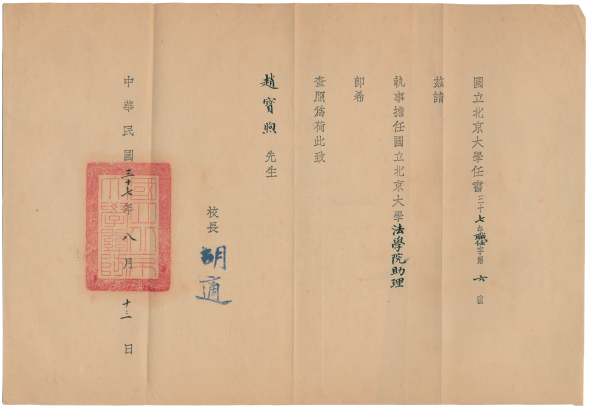 國立北京大學任書三十七年職任字第六號
茲請
執事擔任國立北京大學法學院助理
即希
查照為荷此致
趙寶煦先生
校長
胡適
中華民國三十七年八月十二日